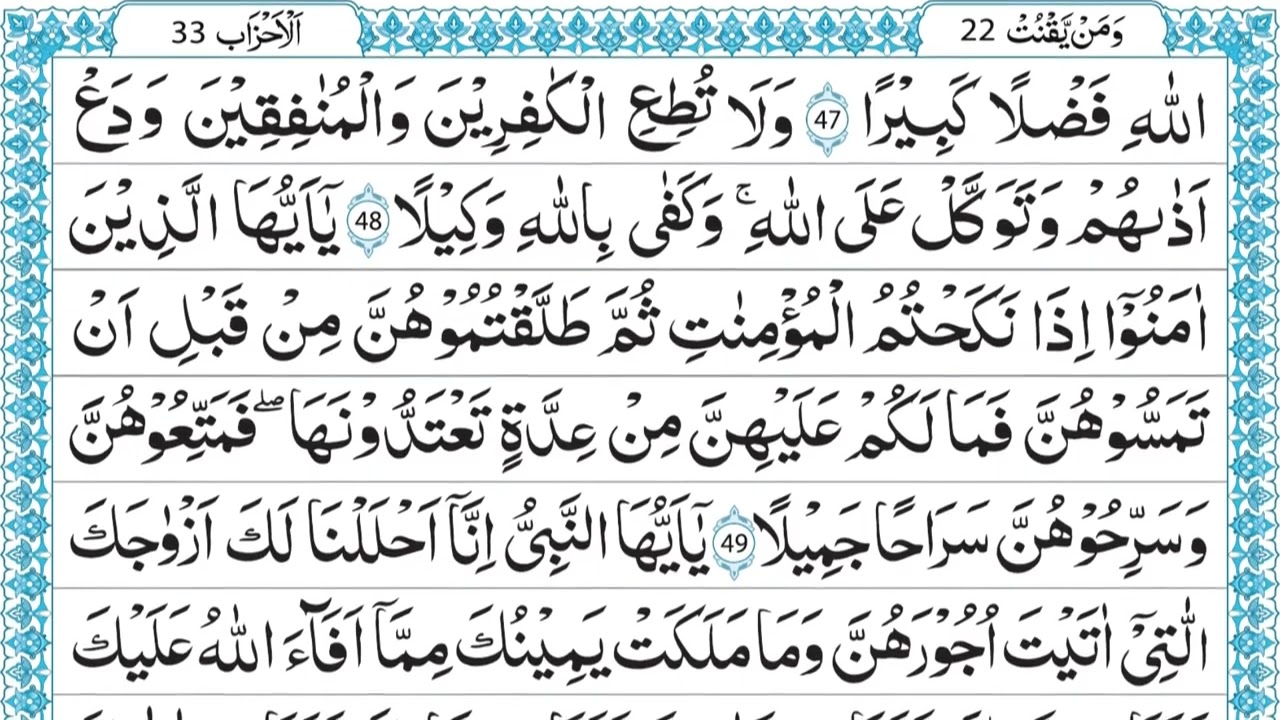 اَلْاَحْزَاب 33
وَمَنْ يَّقْنُتْ 22
اللّٰهِ فَضْلًا كَبِيْرًا 47 وَلَا تُطِعِ الْكٰفِرِيْنَ وَالْمُنٰفِقِيْنَ وَدَعْ
اَذٰىهُمْ وَتَوَكَّلْ عَلَى اللّٰهِ ۚ وَكَفٰى بِاللّٰهِ وَكِيْلًا 48 يٰٓاَيُّهَا الَّذِيْنَ
اٰمَنُوْٓا اِذَا نَكَحْتُمُ الْمُؤْمِنٰتِ ثُمَّ طَلَّقْتُمُوْهُنَّ مِنْ قَبْلِ اَنْ
تَمَسُّوْهُنَّ فَمَا لَكُمْ عَلَيْهِنَّ مِنْ عِدَّةٍ تَعْتَدُّوْنَهَا ۖ فَمَتِّعُوْهُنَّ
وَسَرِّحُوْهُنَّ سَرَاحًا جَمِيْلًا 49 يٰٓاَيُّهَا النَّبِىُّ اِنَّآ اَحْلَلْنَا لَكَ اَزْوٰجَكَ
الّٰتِىْٓ اٰتَيْتَ اُجُوْرَهُنَّ وَمَا مَلَكَتْ يَمِيْنُكَ مِمَّآ اَفَآءَ اللّٰهُ عَلَيْكَ